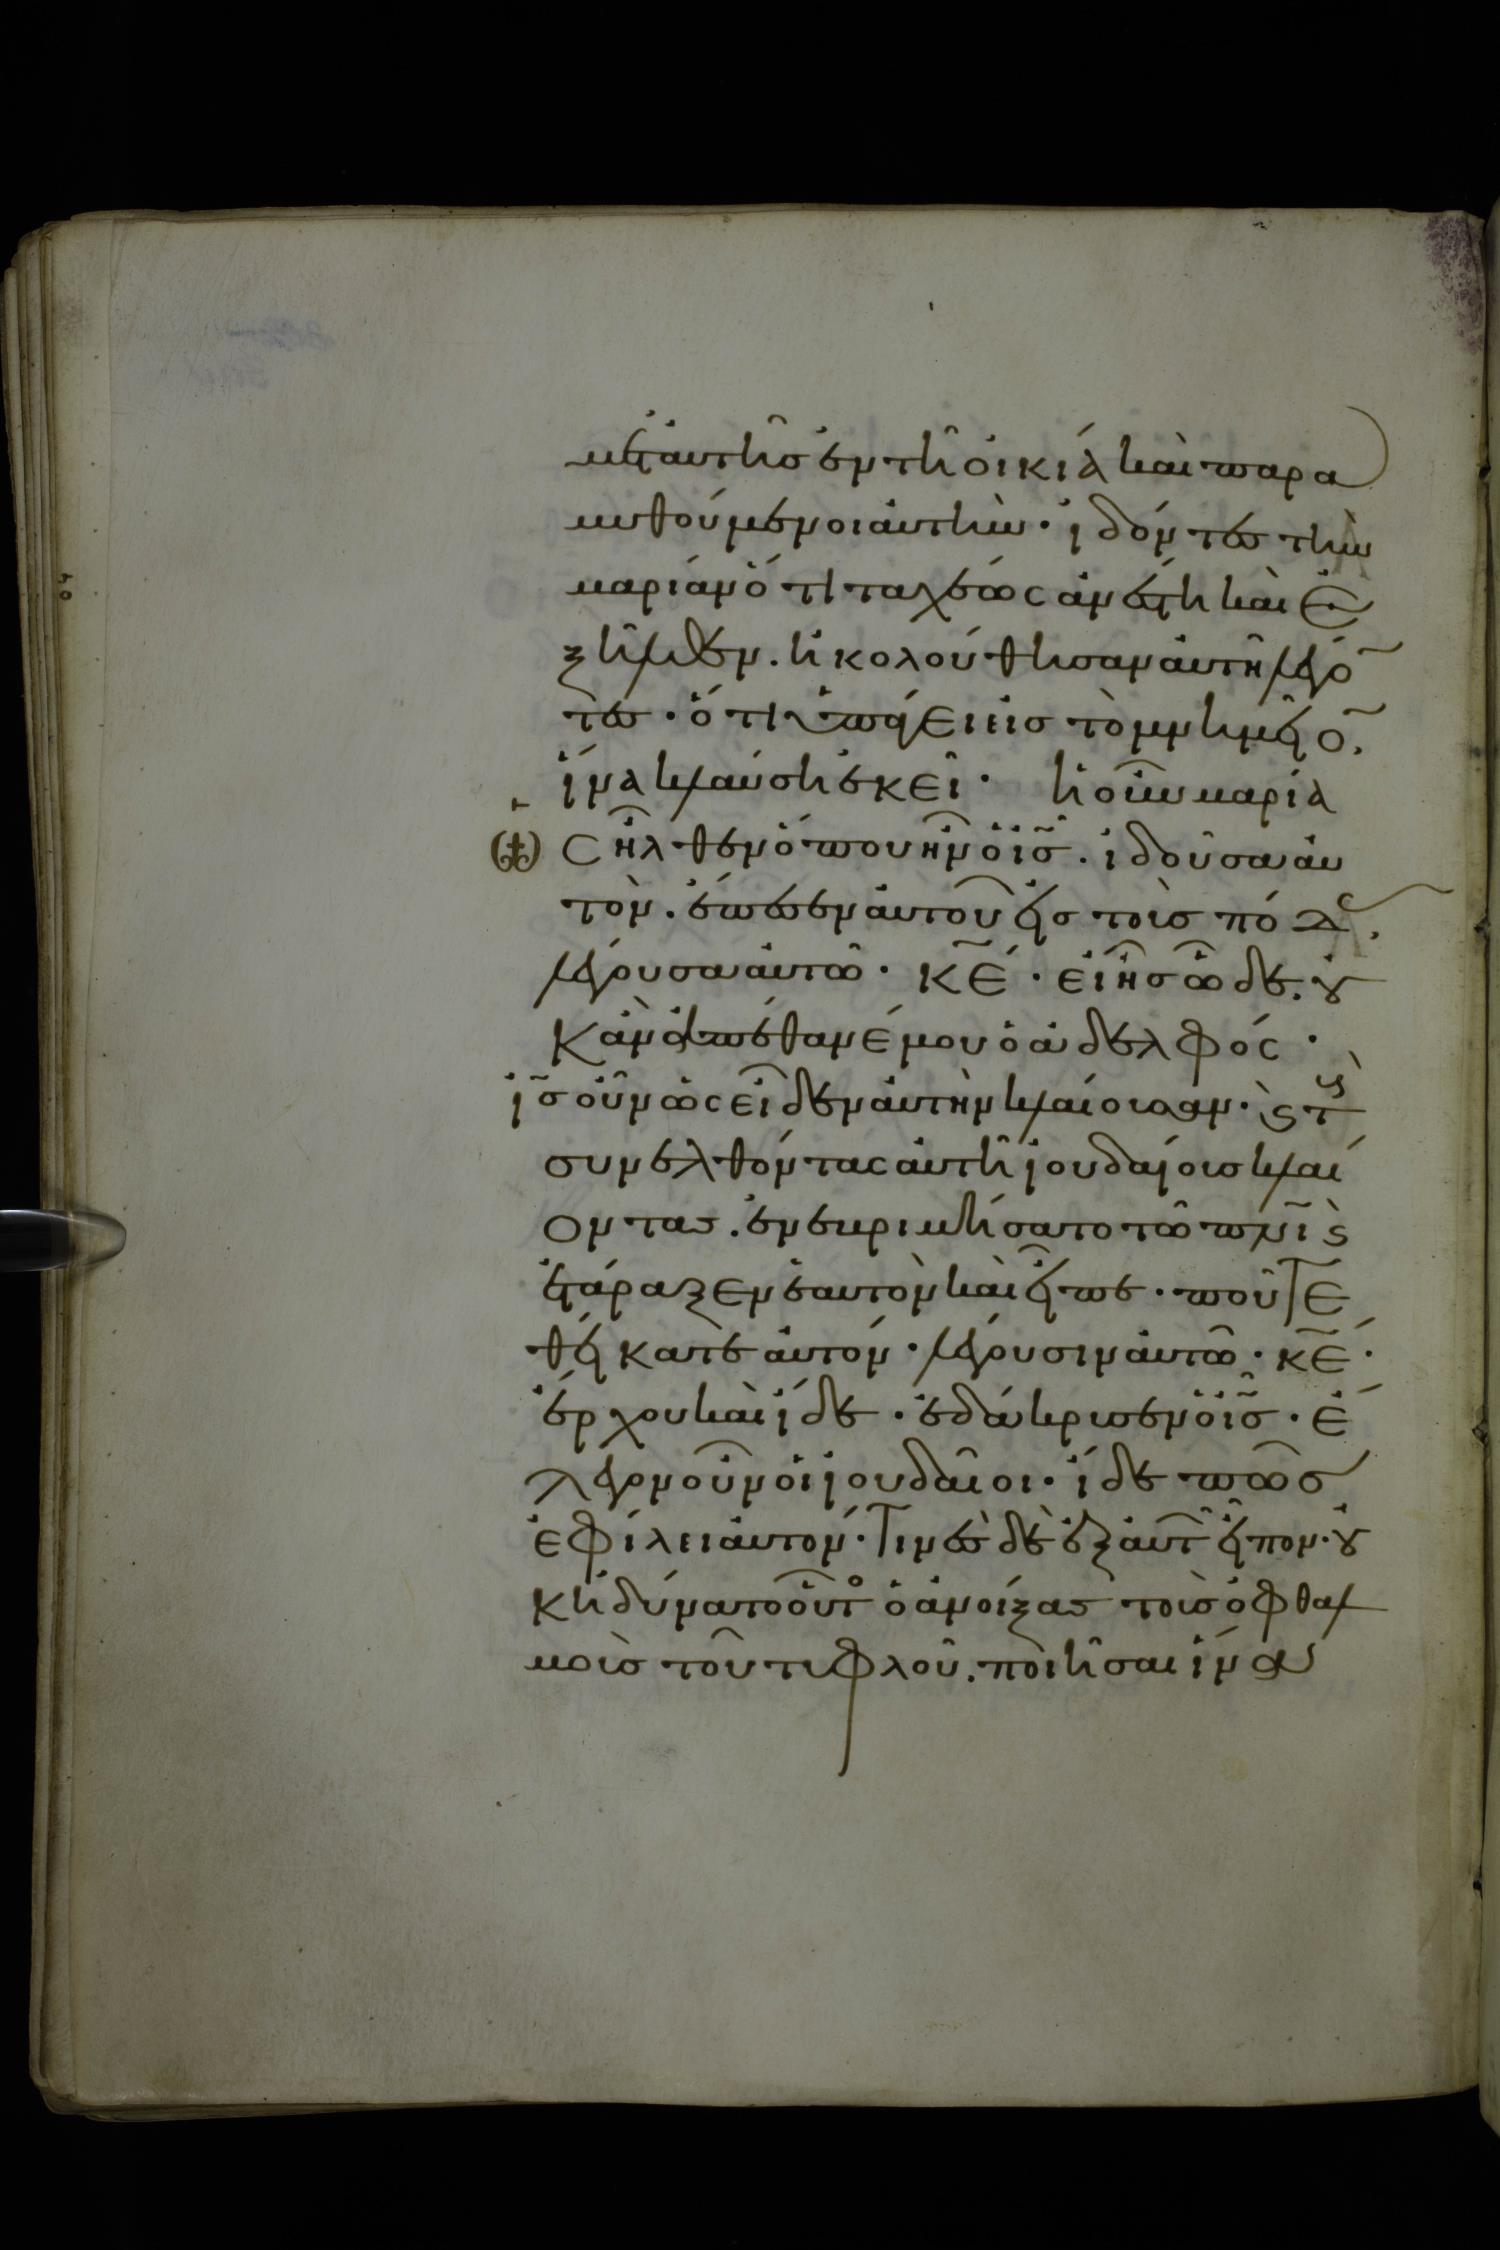 μετ' αὐτῆς ἐν τῇ οἰκίᾳ καὶ παρα
μυθούμενοι αὐτήν· ἰδόντες τὴν
μαρίαν ὅτι ταχέως ἀνέστη καὶ ἐ
ξῆλθεν. ἠκολούθησαν αὐτῆ λέγο̃
τες · ὅτι ὑπάγει εἰς τὸ μνημεῖο̃.
ἵνα κλαύση ἐκεῖ · ἡ οὖν μαρία
ὡς ἦλθεν ὅπου ἦν ὁ ις̃. ἰδοῦσα αὐ
τὸν. ἔπεσεν αὐτοῦ εἰς τοὺς πόδ.
λέγουσα αὐτῶ · κε̃ · εἰ ἦς ὧδε. ȣ
κ ἂν ἀπέθανέ μου ὁ ἀδελφός ·
ις̃ οὖν ὡς εἶδεν αὐτὴν κλαίουσαν · ϗ τȣς
συνελθόντας αὐτῆ ἰουδαίους κλαί
οντας. ἐνεβριμήσατο τῶ πνι̃ ϗ
ἐτάραξεν ἑαυτὸν καὶ εἶπε · ποῦ τε
θείκατε αὐτόν · λέγουσιν αὐτῶ · κε̃ ·
ἔρχου καὶ ἴδε · ἐδάκρυσεν ὁ ις̃ · ἔ
λεγον οὖν οἱ ἰουδαῖοι · ἴδε πῶς
ἐφίλει αὐτόν · Τινὲς δὲ ἐξ αὐτ εἶπον · ȣ
κ ἠδύνατο οὗτ ὁ ἀνοίξας τοὺς ὀφθαλ
μοὺς τοῦ τυφλοῦ. ποιῆσαι ἵνα